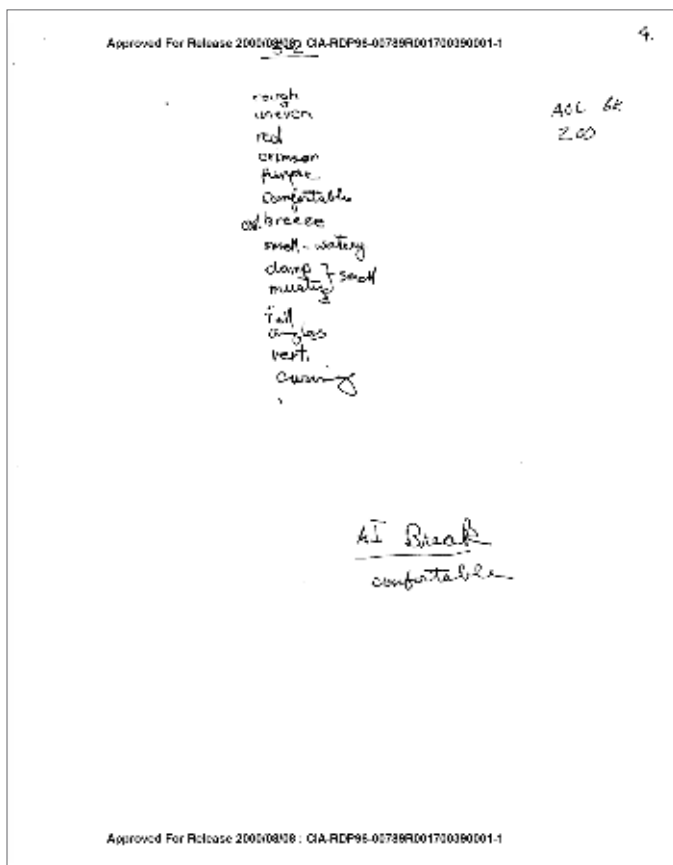 4.
Approved For Release 2000/08/08 : CIA-RDP96-00789R001700390001-1
S2
rough
uneven
red
crimson
purple
comfortable
breeze
smell - watery
damp } smell
musty
tall
angles
vert.
curving
AOL BK
ZOO
AI Break
comfortable
Approved For Release 2000/08/08 : CIA-RDP96-00789R001700390001-1